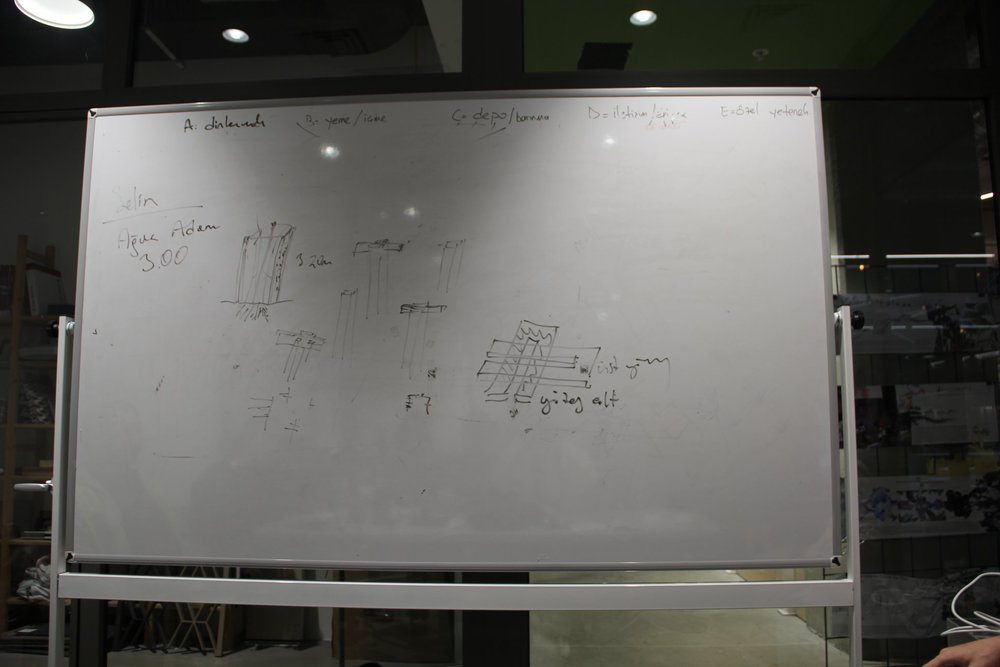 A: dinlenmek B: yeme/içme C: depo/barınma D= iletişim/ E=özel yetenek
Selin
Ağaç Adam
3.00
3
üst
yüzey alt